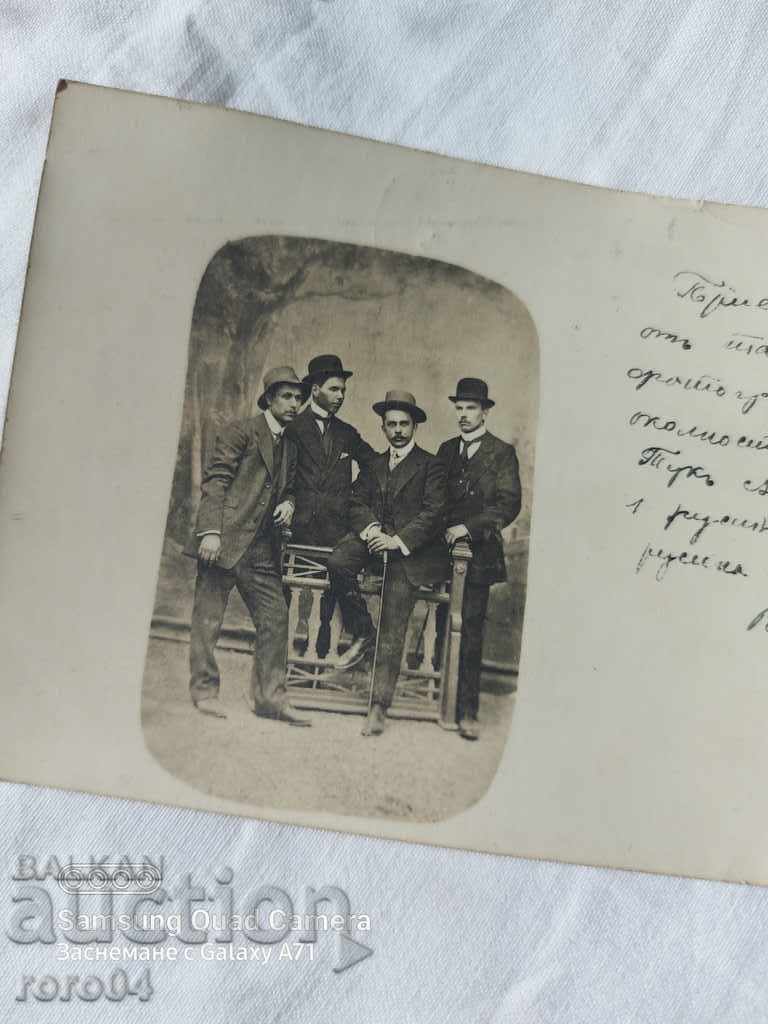 Прие
отъ та
фотогр
околност
Тукъ
1 русин
русина
BALKAN
auction
Samsung Quad Camera
Заснемане с Galaxy A71
roro04